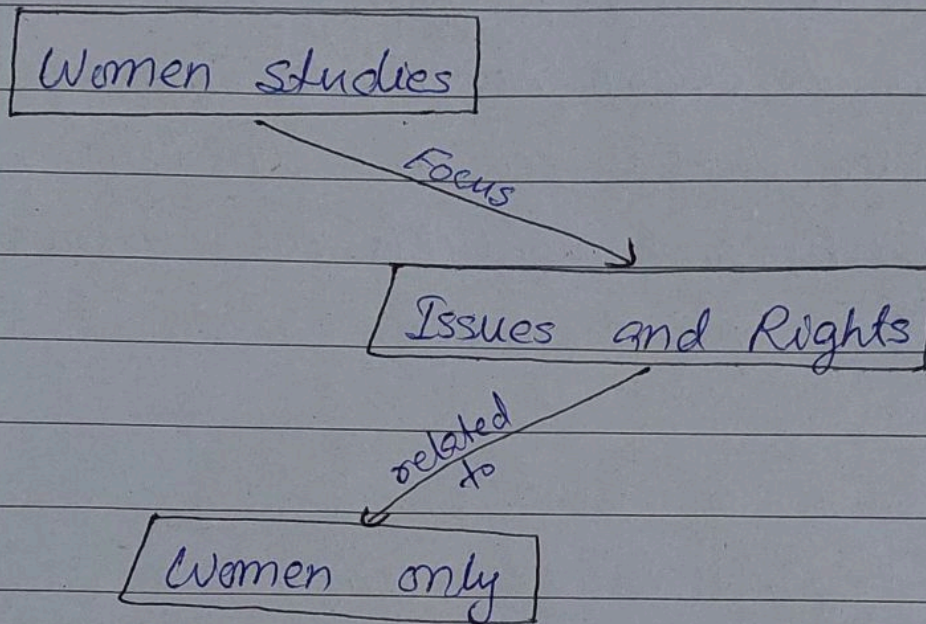 Women studies
Focus
Issues and Rights
related
to
Women only